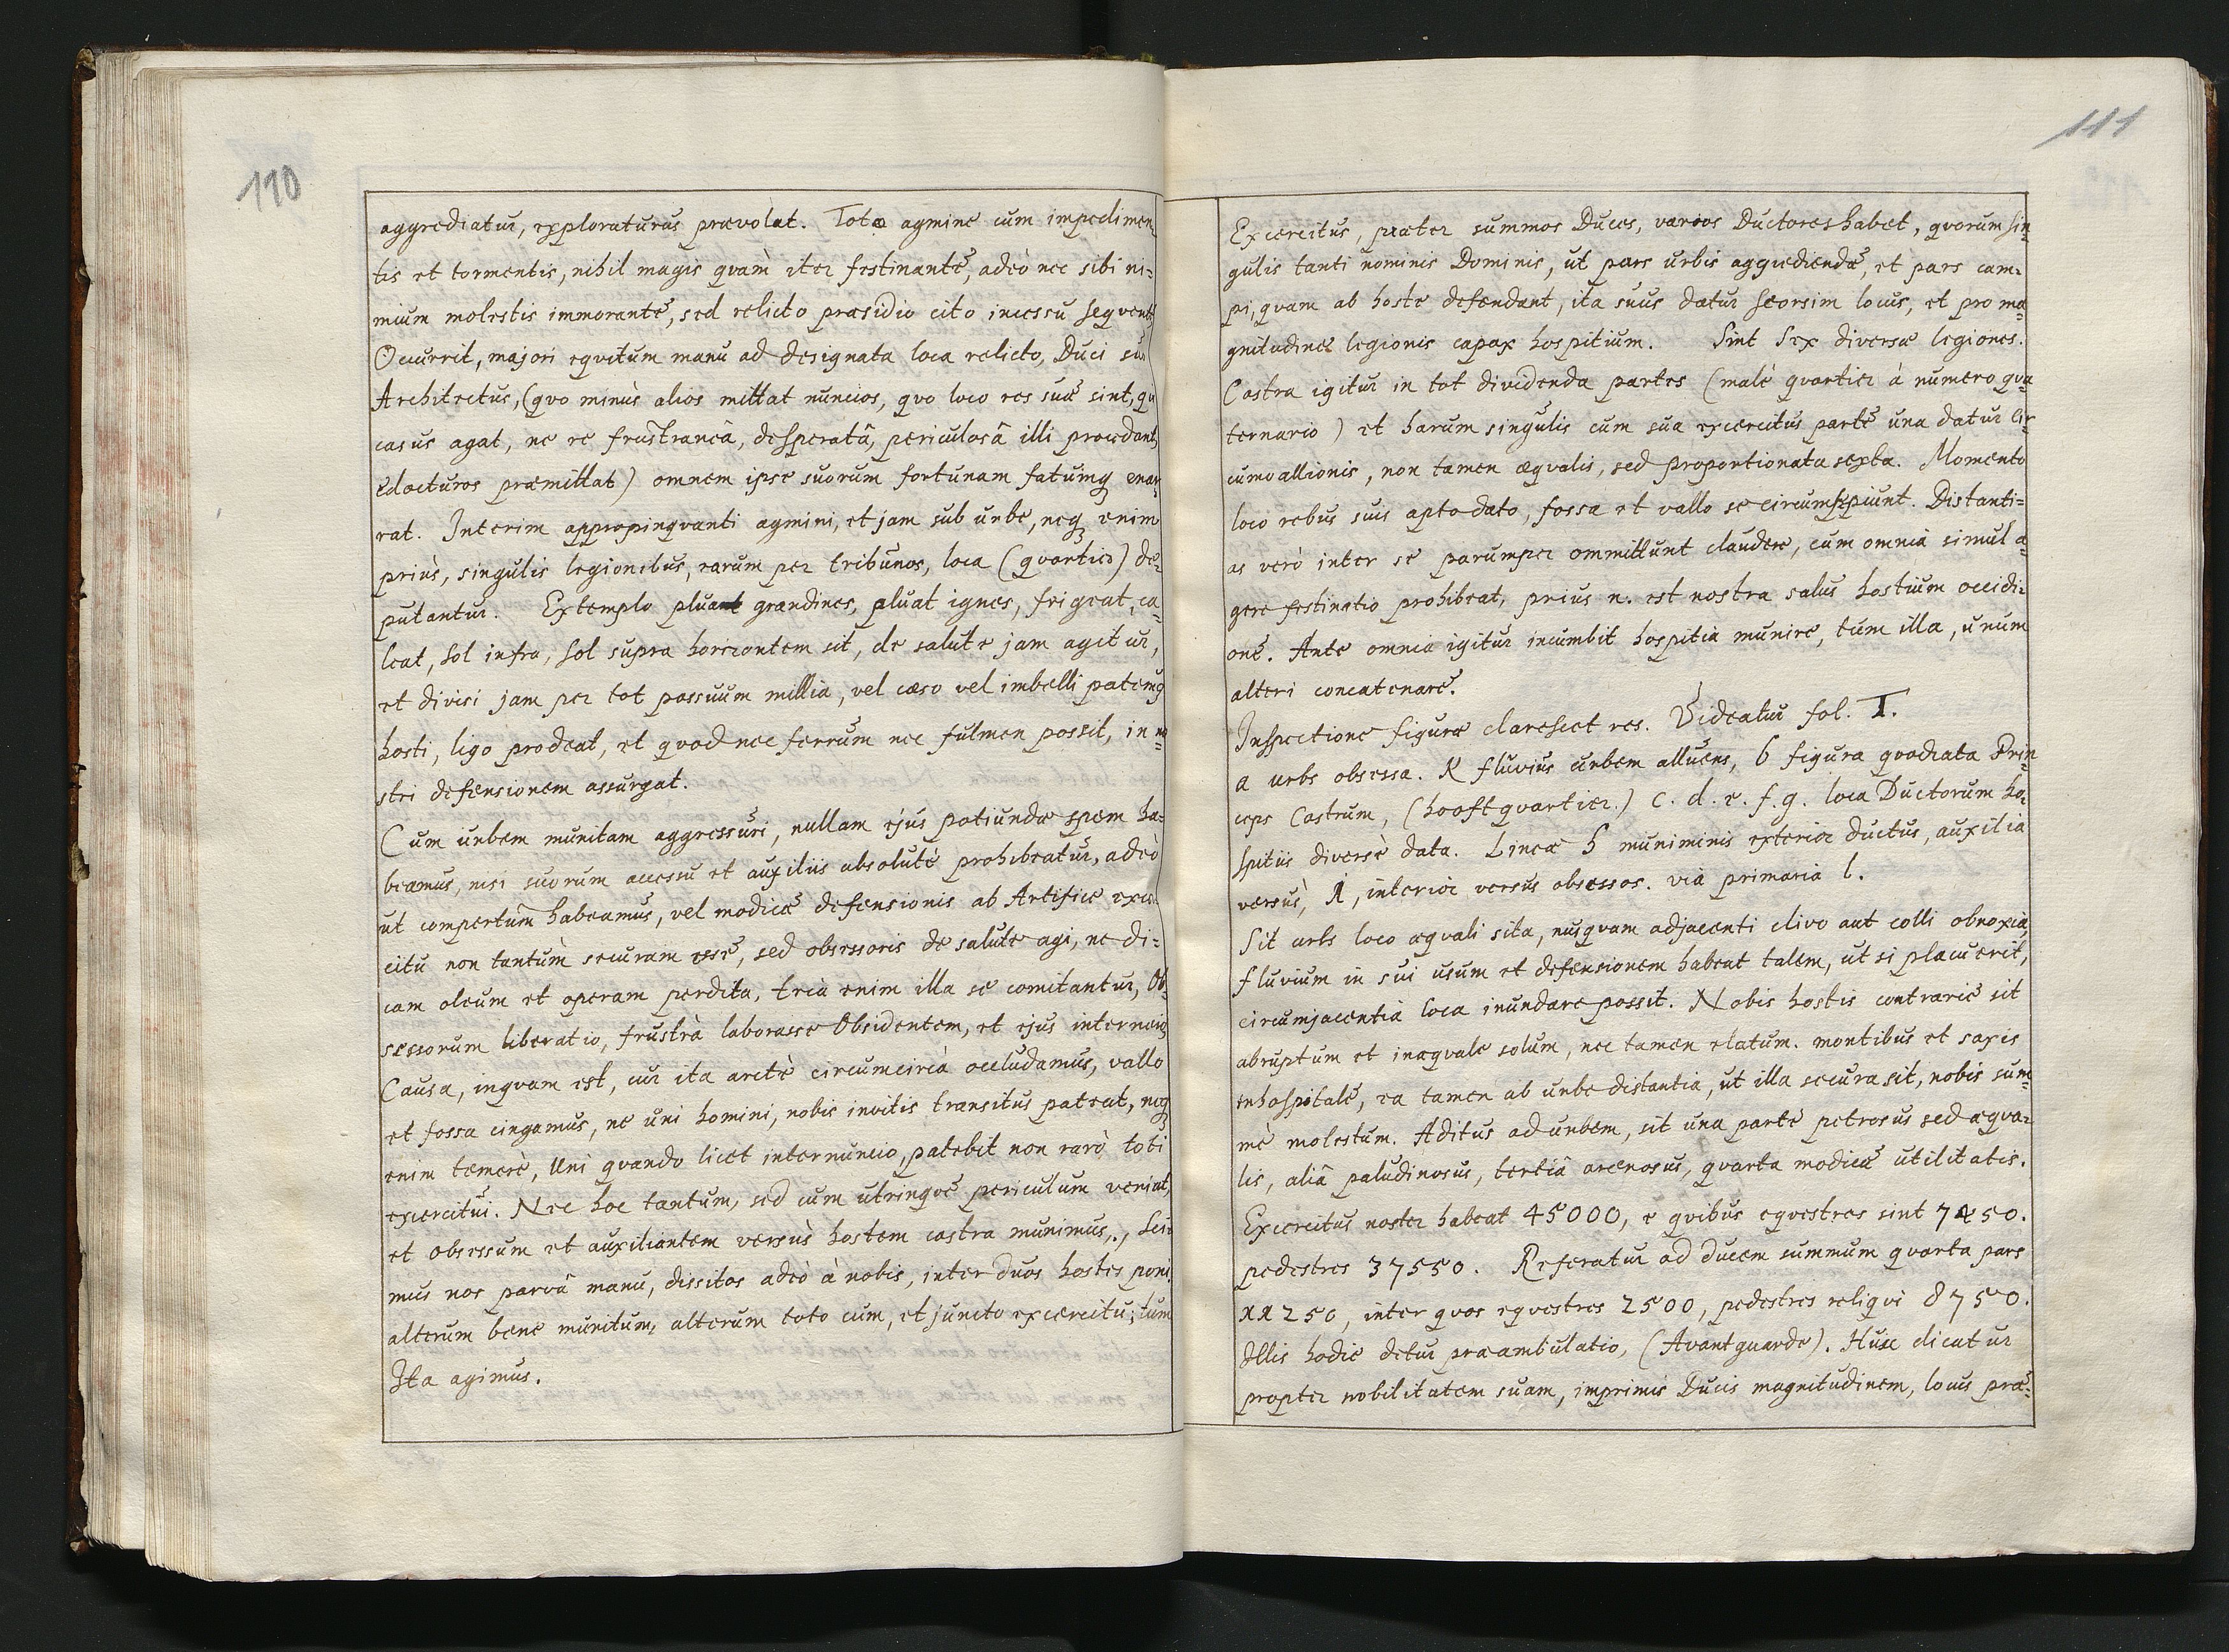 110
aggrediatur, exploraturus prævolat. Toto agmine cum impedimen-
tis et tormentis, nihil magis qvàm iter festinante, adeò nec sibi ni-
mium molestis immorante, sed relicto præsidio cito incessu seqvente
Occurrit, majori eqvitum manu ad designata loca relicto, Duci suo
Architectus, (qvo minùs alios mittat nuncios, qvo loco res suæ sint, qvi
casus agat, ne re frustraneâ, desperatâ, periculosâ illi procedant,
edocturos præmittat) omnem ipse suorum fortunam fatumq enar-
rat. Interim appropinqvanti agmini, et jam sub urbe, neq enim
priùs, singulis legionibus, earum per tribunos, loca (qvartier) de-
putantur. Extemplo pluant grandines, pluat ignes, frigeat, ca-
leat, sol infra, sol supra horizontem sit, de salute jam agitur,
et divisi jam per tot passuum millia, vel cæso vel imbelli patemq
hosti, ligo prodeat, et qvod nec ferrum nec fulmen possit, in no-
stri defensionem assurgat.
Cum urbem munitam aggressuri, nullam ejus potiundæ spem ha-
beamus, nisi suorum accessu et auxiliis absolutè prohibeatur, adeò
ut compertum habeamus, vel modicæ defensionis ab Artifice exer-
citu non tantùm securam esse, sed obsessoris de salute agi, ne di-
cam oleum et operam perdita, tria enim illa se comitantur, Ob-
sessorum liberatio, frustrà laborasse Obsidentem, et ejus internecio,
Causa, inqvam est, cur ita arctè circumcircà occludamus, vallo
et fossa cingamus, ne uni homini, nobis invitis transitus pateat, neq
enim temerè, Uni qvando licet internuncio, patebit non rarò toti
exercitui. Nec hoc tantum, sed cum utrinqve periculum veniat,
et obsessum et auxiliantem versùs hostem castra munimus, sci-
mus nos parvâ manu, dissitos adeò à nobis, inter duos hostes poni
alterum bene munitum, alterum toto cum, et juncto exercitu; tum
Ita agimus.
111
Exercitus, præter summos Duces, varios Ductores habet, qvorum sin-
gulis tanti nominis Dominis, ut pars urbis aggrediendæ, et pars cam-
pi, qvam ab hoste defendant, ita suus datur seorsim locus, et pro ma-
gnitudine legionis capax hospitium. Sint Sex diversæ legiones.
Castra igitur in tot dividenda partes (malè qvartier à numero qva-
ternario) et harum singulis cum sua exercitus parte una datur cir-
cumvallionis, non tamen æqvalis, sed proportionata sexta. Momento
loco rebus suis apto dato, fossa et vallo se circumsepiunt. Distanti-
as verò inter se parumper ommittunt claudere, cum omnia simul a-
gere festinatio prohibeat, prius n. est nostra salus hostium occidi-
one. Ante omnia igitur incumbit hospitia munire, tum illa, unum
alteri concatenare.
Inspectione figuræ clarescet res. Videatur fol. T.
a urbs obsessa. K fluvius urbem alluens, b figura qvadrata Prin-
ceps Castrum, (hooftqvartier.) c. d. e. f. g. loca Ductorum ho-
spitiis diversè data. Lineæ h muniminis exterior ductus, auxilia
versùs, i, interior versus obsessos. via primaria l.
Sit urbs loco æqvali sita, nusqvam adjacenti clivo aut colli obnoxia,
fluvium in sui usum et defensionem habeat talem, ut si placuerit,
circumjacentia loca inundare possit. Nobis hostis contrarie sit
abruptum et inæqvale solum, nec tamen elatum. montibus et saxis
inhospitale, ea tamen ab urbe distantia, ut illa secura sit, nobis sum-
mè molestum. Aditus ad urbem, sit una parte petrosus sed æqva-
lis, aliâ paludinosus, tertiâ arenosus, qvarta modicæ utilitatis.
Exercitus noster habeat 45000, e qvibus eqvestres sint 7450.
pedestres 37550. Referatur ad ducem summum qvarta pars
11250, inter qvos eqvestres 2500, pedestres reliqvi 8750.
Illis hodie detur præambulatio, (Avantguarde). Huic dicatur
propter nobilitatem suam, imprimis Ducis magnitudinem, locus præ-